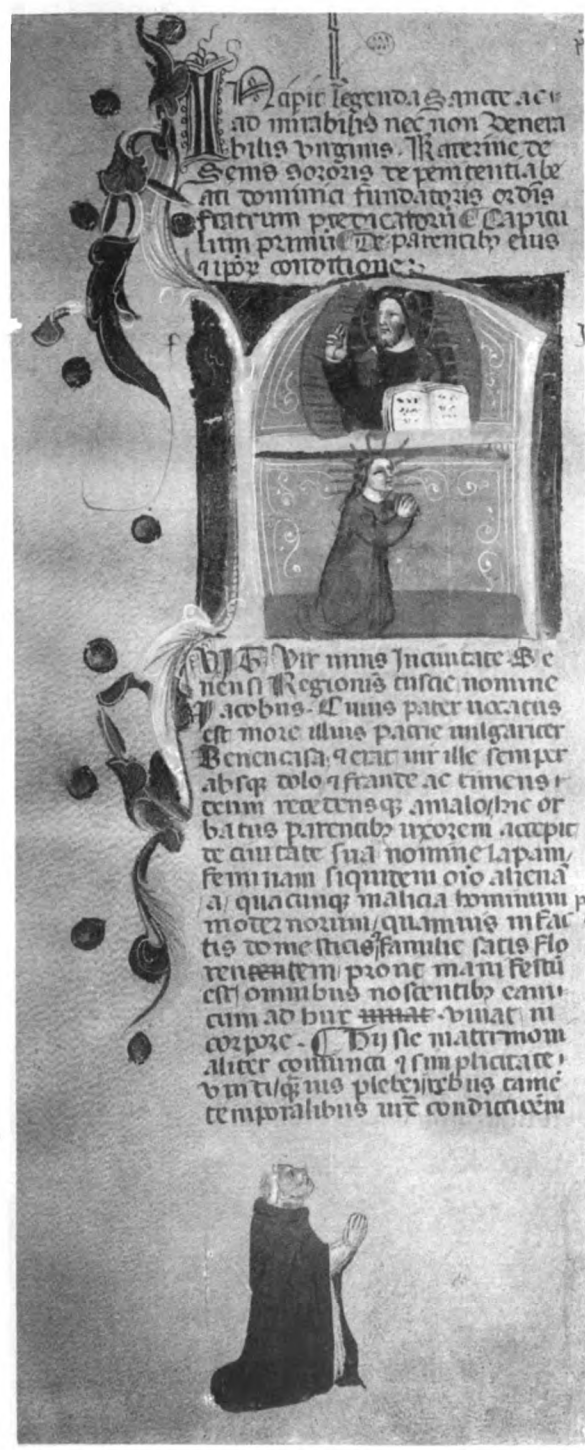 INcipit legenda Sancte ac
ad mirabilis nec non Venera
bilis virginis. Katerine de
Senis sororis de penitentia be
ati dominici fundatoris ordis
fratrum predicatorū Capitu
lum primū De parentibȝ eius
⁊ ipoꝝ conditione
VIT Vir unus In ciuitate Se
nensi Regionis tuscie nomine
Iacobus. Cuius pater uocatus
est more illius patrie uulgariter
Benencasa. ⁊ erat uir ille semper
absqꝫ dolo ⁊ fraude ac timens
deum recedensqꝫ a malo/hic or
batus parentibȝ uxorem accepit
de ciuitate sua nomine lapam/
feminam siquidem oīo alienā
/a/ quacunqꝫ malicia hominum
modernorum/quamuis in fac
tis domesticis/familie satis flo
rentem/prout manifestū
est omnibus noscentibȝ eam
cum ad huc uiuat. uiuat in
corpore. Hij sic matrimoni
aliter coniuncti ⁊ simplicitate
uiuti/quis plebei/rebus tamē
temporalibus iuxͭ condicticem